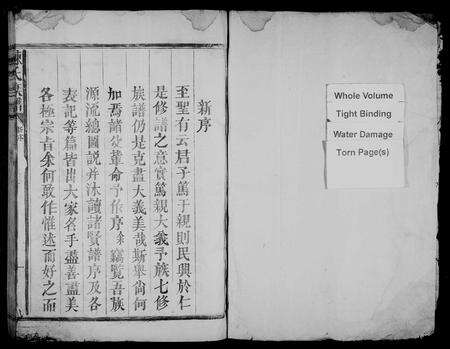 新序
至聖有云君子篤于親則民興於仁
是修譜之意實篤親大義予族七修
族譜仍是克盡大義美哉斯舉尚何
加焉諸徒輩命予作序余竊覽吾族
源流總圖說并沐讀諸賢譜序及各
表記等篇皆出大家名手盡善盡美
各極宗旨余何敢作惟述而好之而
氏族譜
Whole Volume
Tight Binding
Water Damage
Torn Page(s)